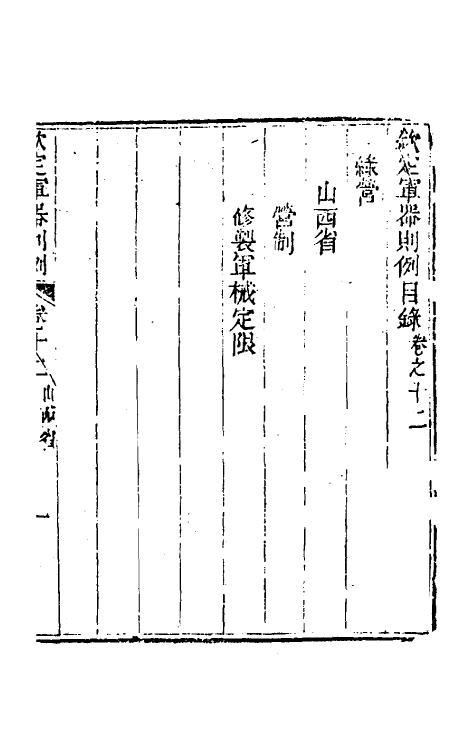 欽定軍器則例目錄卷之十二
綠營
山西省
營制
修製軍械定限
欽定軍器則例 卷之十二 山西省 一